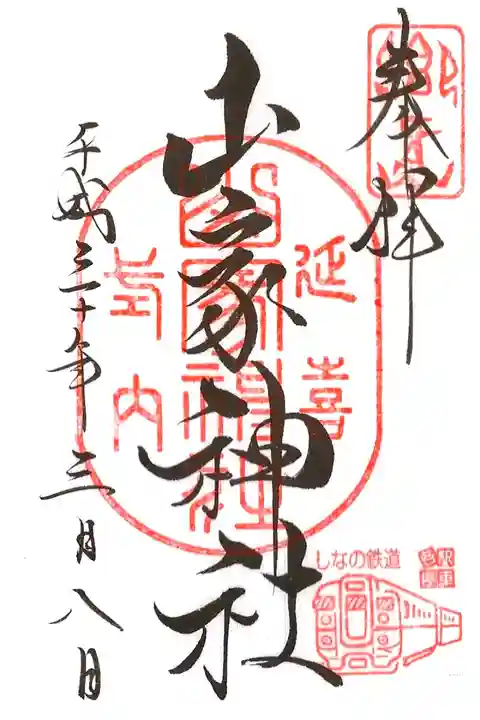 奉拝
山家神社
延喜
式内
山家神社
平成三十年三月八日
しなの鉄道